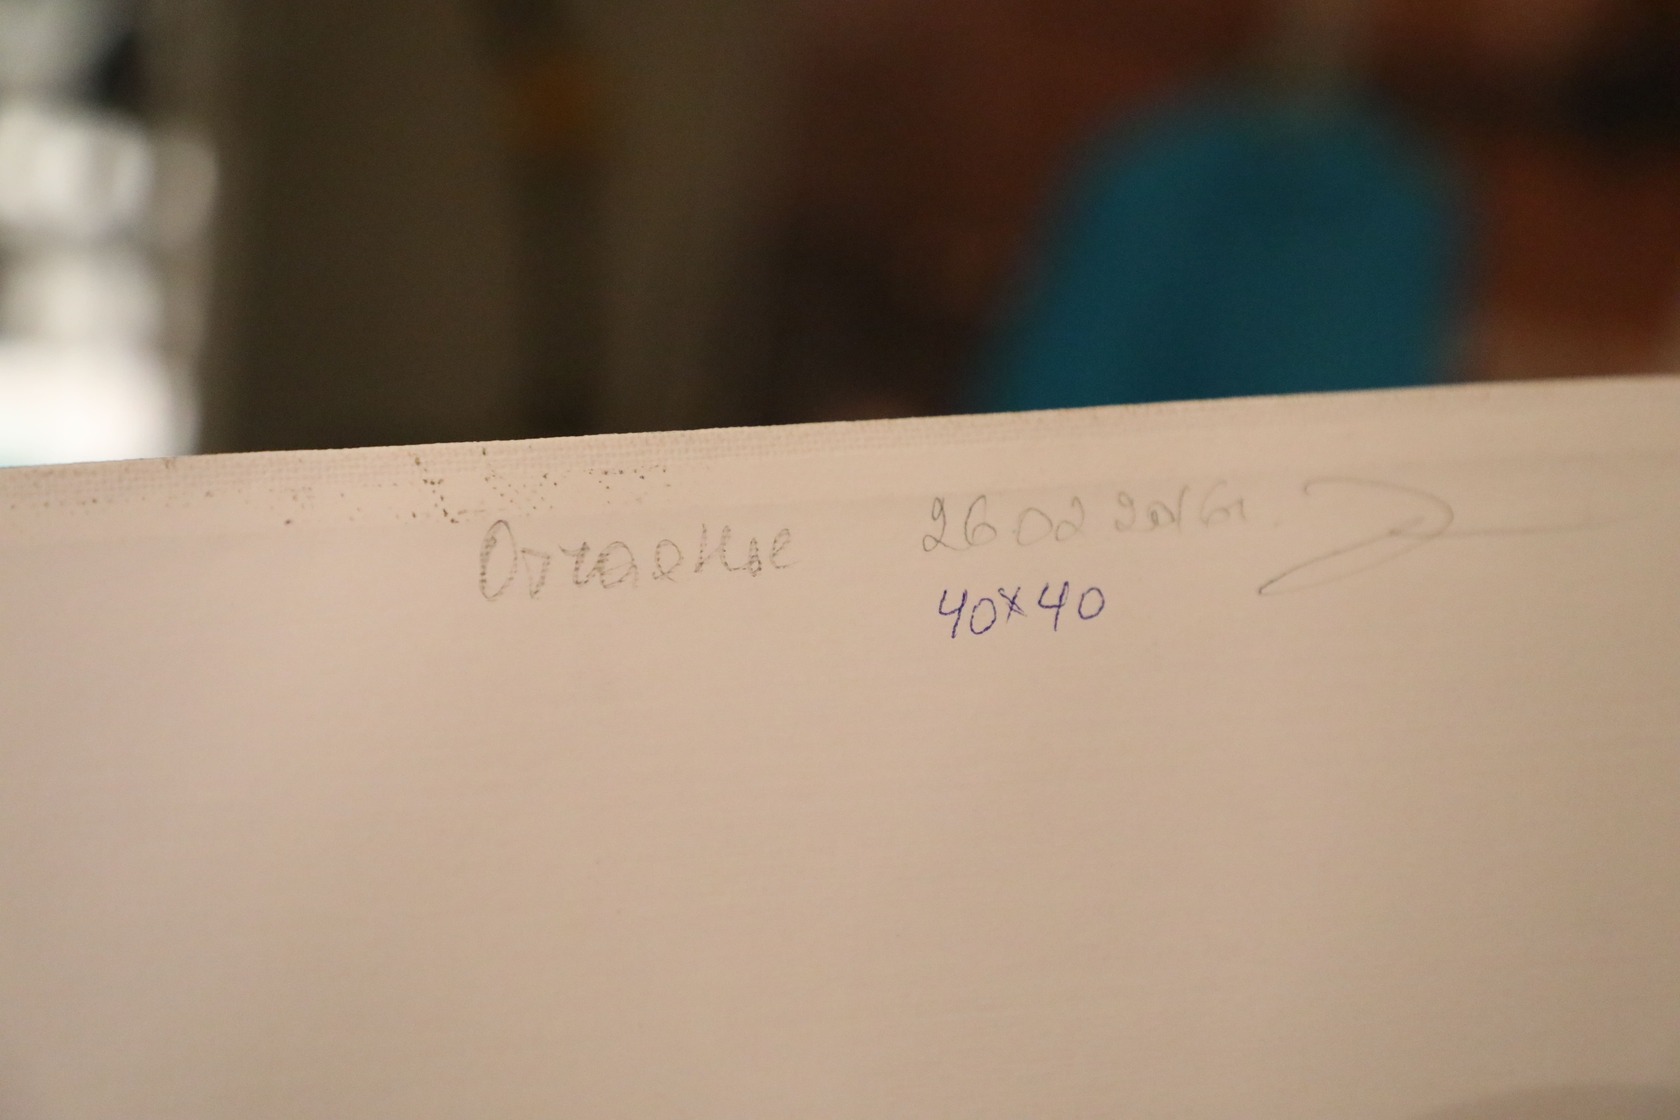 Отчаение 26 02 2016г.
40x40